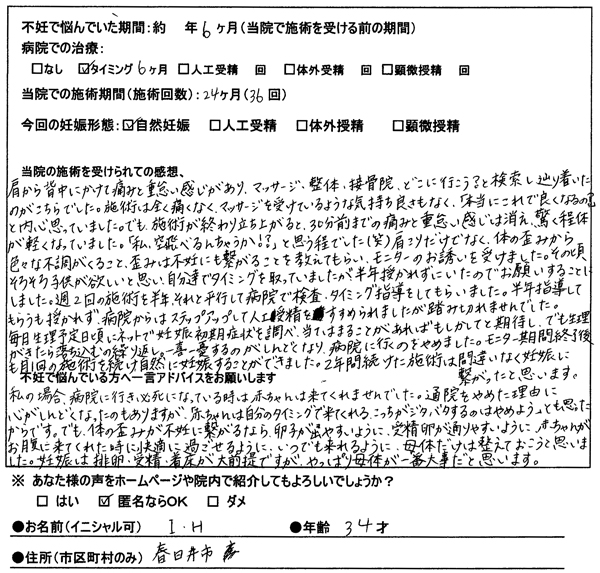 不妊で悩んでいた期間:約　　年6ヶ月(当院で施術を受ける前の期間)
病院での治療:
□なし　☑タイミング6ヶ月　□人工受精　回　□体外受精　回　□顕微授精　回
当院での施術期間(施術回数):24ヶ月(36回)
今回の妊娠形態:☑自然妊娠　□人工授精　□体外授精　□顕微授精
当院の施術を受けられての感想、
肩から背中にかけて痛みと重怠い感じがあり、マッサージ、整体、接骨院、どこに行こうと検索し辿り着いた
のがこちらでした。施術は全く痛くなく、マッサージを受けているような気持ち良さもなく、「本当にこれで良くなるの?」
と内心思っていました。でも、施術が終わり立ち上がると、30分前までの痛みと重怠い感じは消え、驚く程体
が軽くなっていました。「私、空飛べるんちゃうか!?」と思う程でした(笑)肩こりだけでなく、体の歪みから
色々な不調がくること、歪みは不妊にも繋がることを教えてもらい、モニターのお誘いを受けました。その頃
そろそろ子供が欲しいと思い、自分達でタイミングを取っていましたが半年授かれずにいたのでお願いすることに
しました。週2回の施術を半年、それと平行して病院で検査、タイミング指導をしてもらいました。半年指導して
もらうも授かれず、病院からはステップアップして人工授精をすすめられましたが踏み切れませんでした。
毎月生理予定日頃にネットで妊娠初期症状を調べ、当てはまることがあればもしかしてと期待し、でも生理
がきたら落ち込むの繰り返し。一喜一憂するのがしんどくなり、病院に行くのをやめました。モニター期間終了後
も月1回の施術を続け自然に妊娠することができました。2年間続けた施術は間違いなく妊娠に
繋がったと思います。
不妊で悩んでいる方へ一言アドバイスをお願いします
私の場合、病院に行き必死になっている時は赤ちゃんは来てくれませんでした。通院をやめた理由に
心がしんどくなったのもありますが、赤ちゃんは自分のタイミングで来てくれる、こっちがジタバタするのはやめようとも思った
からです。でも、体の歪みが不妊に繋がるなら、卵子が出やすいように、受精卵が通りやすいように、赤ちゃんが
お腹に来てくれた時に快適に過ごせるように、いつでも来れるように、母体だけは整えておこうと思いま
した。妊娠は排卵、受精、着床が大前提ですが、やっぱり母体が一番大事だと思います。
※ あなた様の声をホームページや院内で紹介してもよろしいでしょうか?
□ はい　☑ 匿名ならOK　□ ダメ
●お名前(イニシャル可)　I・H　●年齢　34才
●住所(市区町村のみ)　春日井市